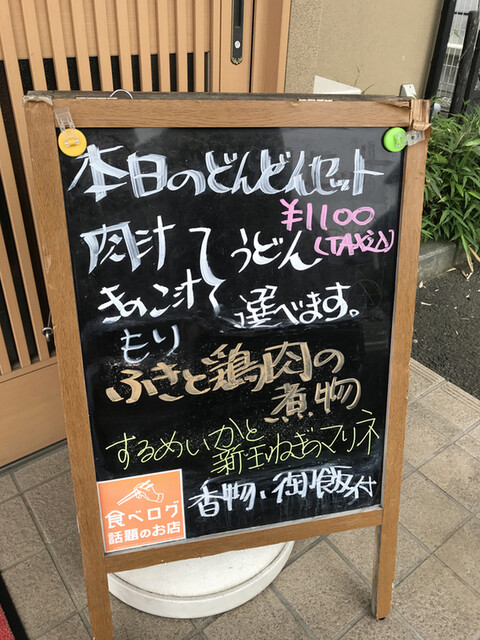 本日のどんどんセット
¥1100
(TAX込)
肉汁
きのこ汁
もり
うどん
選べます。
ふきと鶏肉の
煮物
するめいかと
新玉ねぎのマリネ
香物、御飯付
食べログ
話題のお店